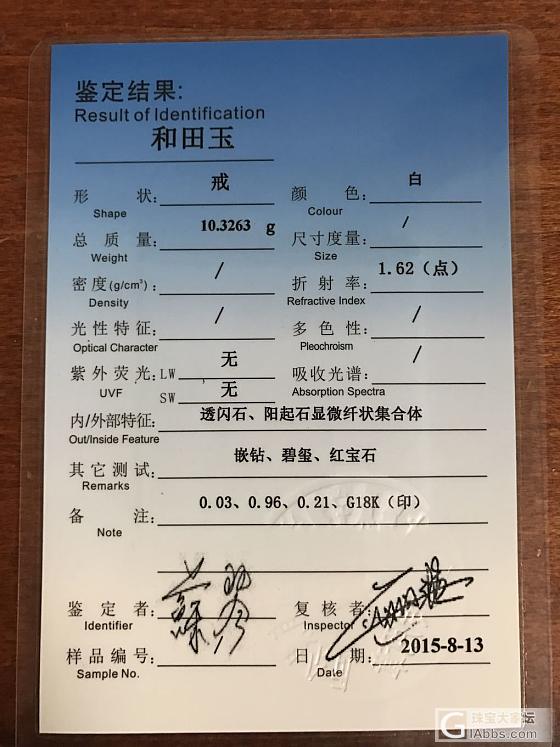 鉴定结果:
Result of Identification
和田玉
形 状: 戒 颜 色: 白
Shape Colour
总 质 量: 10.3263 g 尺寸度量: /
Weight Size
密度(g/cm³): / 折 射 率: 1.62（点）
Density Refractive Index
光性特征: / 多 色 性: /
Optical Character Pleochroism
紫外荧光: LW 无 吸收光谱: /
UVF SW 无 Absorption Spectra
内/外部特征: 透闪石、阳起石显微纤状集合体
Out/Inside Feature
其它测试: 嵌钻、碧玺、红宝石
Remarks
备 注: 0.03、0.96、0.21、G18K（印）
Note
鉴 定 者: 复 核 者:
Identifier Inspector
样品编号: 日 期: 2015-8-13
Sample No. Date
珠宝大家坛
GlAbbs.com